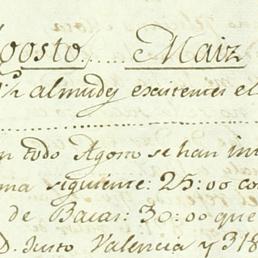 Agosto ..... Maiz
½ almudes excitentes el
n todo Agosto se han in
ma siguiente: 25:00 co
de Bacas: 30:00 que
D. Justo Valencia y 318